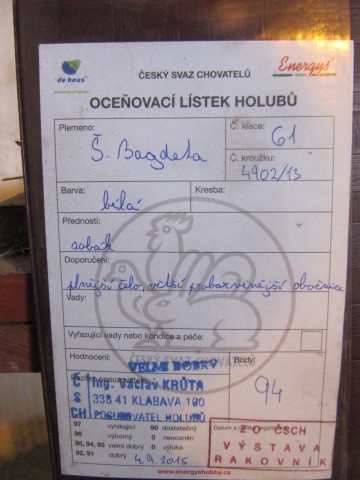 de heus
Energys
ČESKÝ SVAZ CHOVATELŮ
OCEŇOVACÍ LÍSTEK HOLUBŮ
Plemeno: Š. Bagdeta
Č. klece: 61
Č. kroužku: 4902/13
Barva: bílá
Kresba:
Přednosti: zobák
Doporučení: plnější čelo, větší probarvenější obočnice
Vady:
Vyřazující vady nebo kondice a péče:
ČESKÝ SVAZ CHOVATELŮ
Hodnocení: VELMI DOBRÝ
Body: 94
Č Ing. Václav KRŮTA
S 338 41 KLABAVA 190
CH POSUZOVATEL HOLUBŮ
97 vynikající 90 dostatečný
96 výborný 0 neoceněn
95, 94, 93 velmi dobrý 0 výluka
92, 91 dobrý
4.9.2015
ZO ČSCH
VÝSTAVA
RAKOVNÍK
www.energyshobby.cz